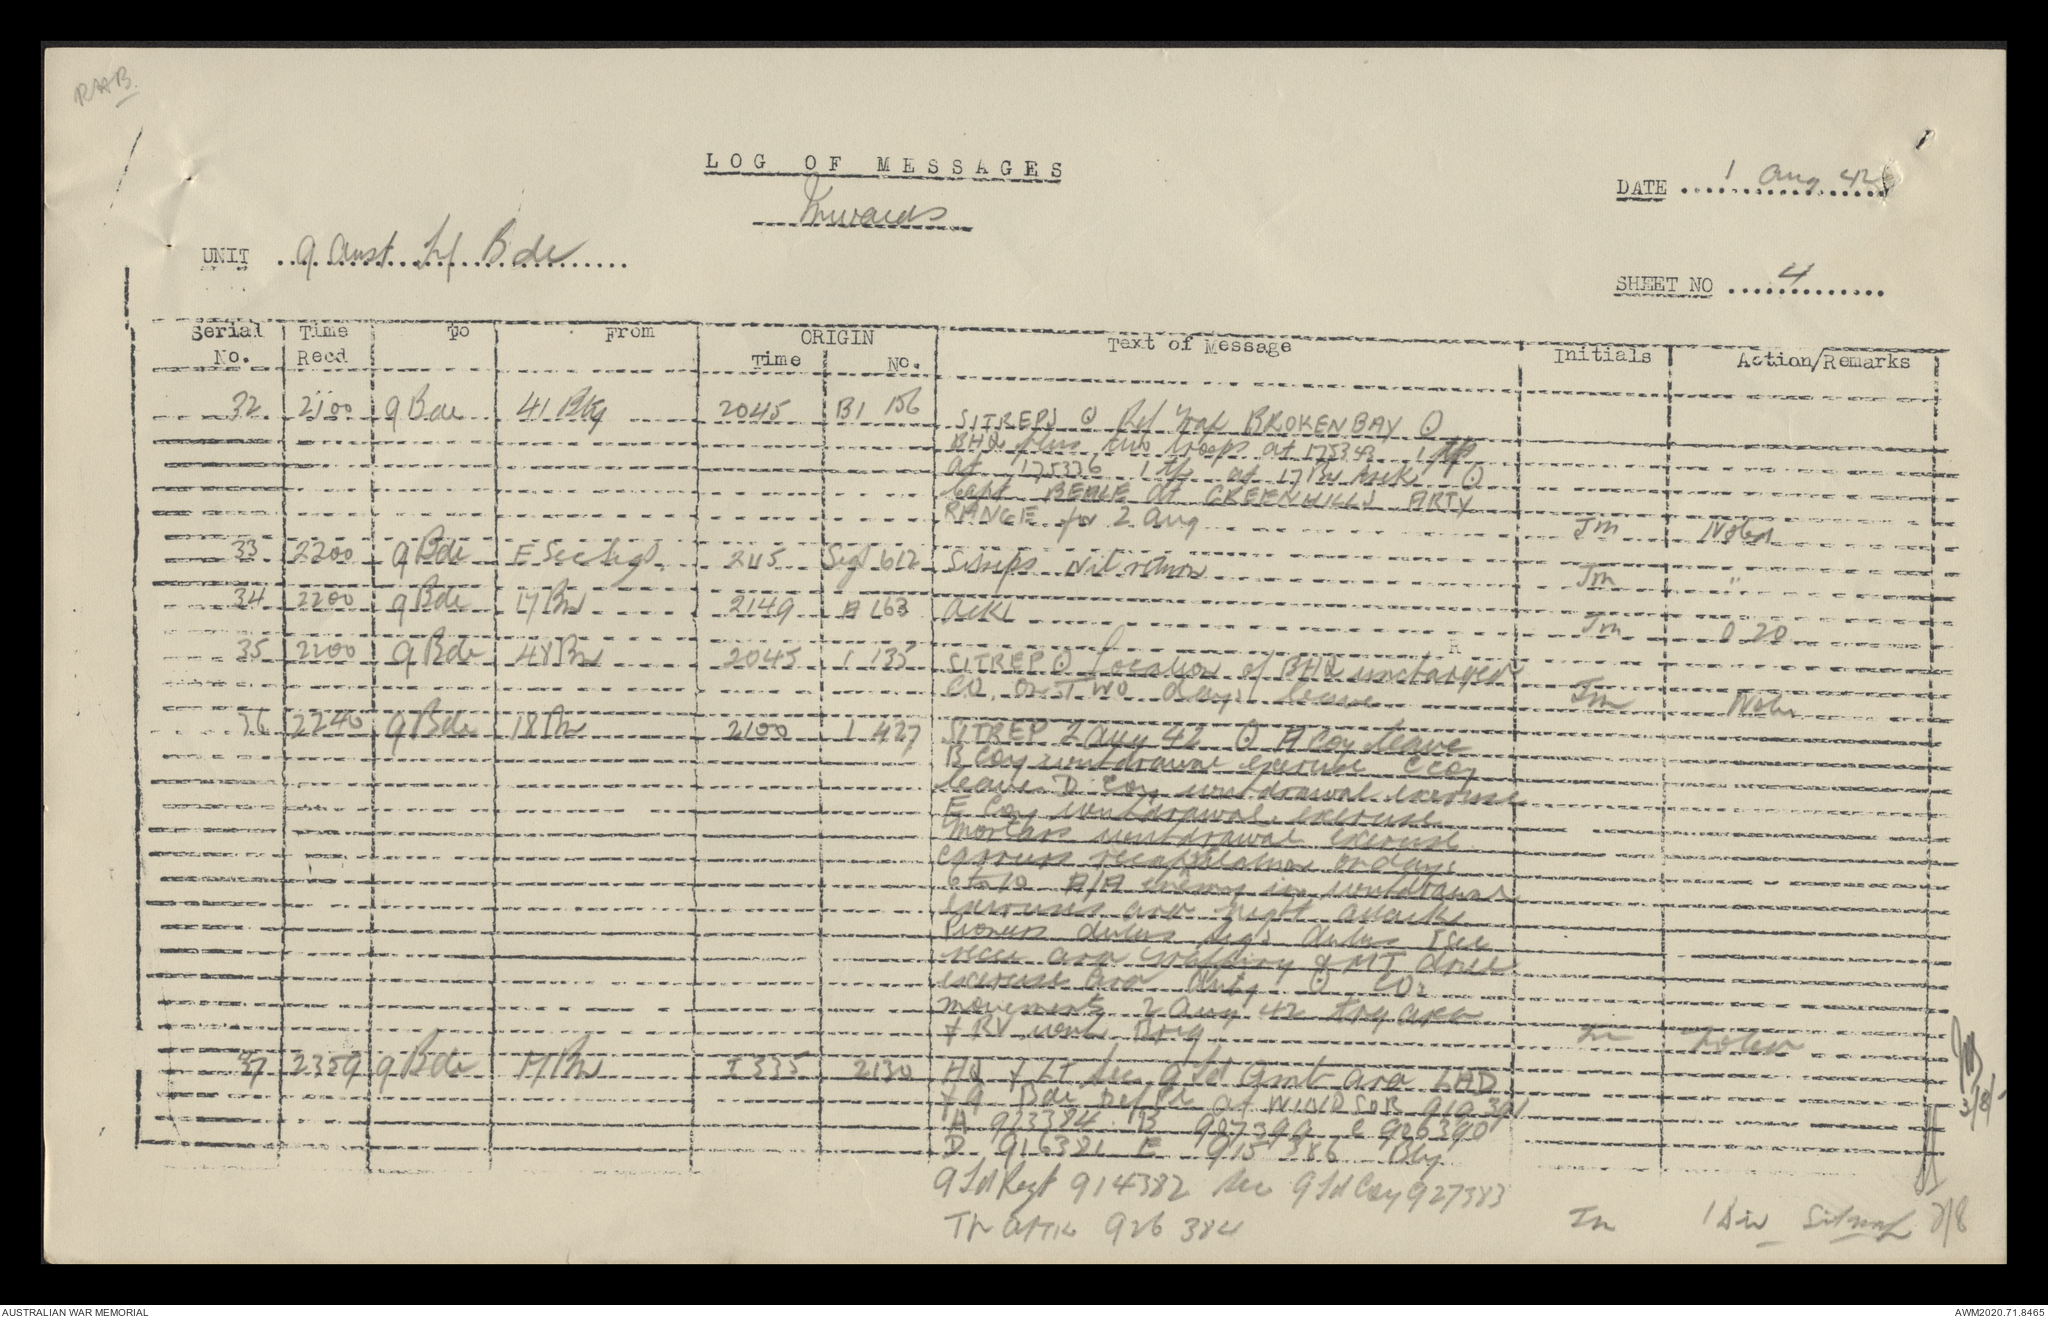 RAAB.
LOG OF MESSAGES
Inwards
DATE 1 Aug 42
UNIT 9 Aust Inf Bde
SHEET NO 4
Serial No. Time Recd To From ORIGIN Time No. Text of Message Initials Action/Remarks
32 2100 9 Bde 41 Bty 2045 B1 156 SITREPS ⊙ Ref Map BROKEN BAY ⊙
BHQ plus two troops at 175343 1 tp
at 175336 1 tp at 17 Bn ⊙
Capt BEALE at GREENHILLS ARTY
RANGE for 2 Aug Jm Noted
33 2200 9 Bde E Sec Sigs. 2115 Sigs 612 Sitreps Nil return Jm "
34 2200 9 Bde 17 Bn 2149 A 163 Ack1 Jm 0 20
35 2200 9 Bde 48 Bn 2045 1 135 SITREP ⊙ Location of BHQ unchanged
CO on TWO days leave Jm Noted
36 2240 9 Bde 18 Bn 2100 1 427 SITREP 2 Aug 42 ⊙ A Coy leave
B Coy withdrawal exercise C Coy
leave D Coy withdrawal exercise
E Coy withdrawal exercise
mortars withdrawal exercise
carriers recapitulation on days
6 to 10 A/A enemy in withdrawal
exercises and night attacks
Pioneers duties Sigs duties I sec
recce and MT drill
exercise and duty ⊙ COs
movements 2 Aug 42 trg area
& RV with Brig Jm Noted
37 2359 9 Bde 17 Bn I 335 2130 HQ & LT Sec 9 Fd Amb and LAD
& 9 Bde Def Pl at WINDSOR 919391
A 923384 B 927390 C 926390
D 916381 E 915386 Bty
9 Fd Regt 914382 Sec 9 Fd Coy 927383
Tk Attk 926384 Jm 1 Div Sitmap 2/8
3/8/-
AUSTRALIAN WAR MEMORIAL
AWM2020.71.8465